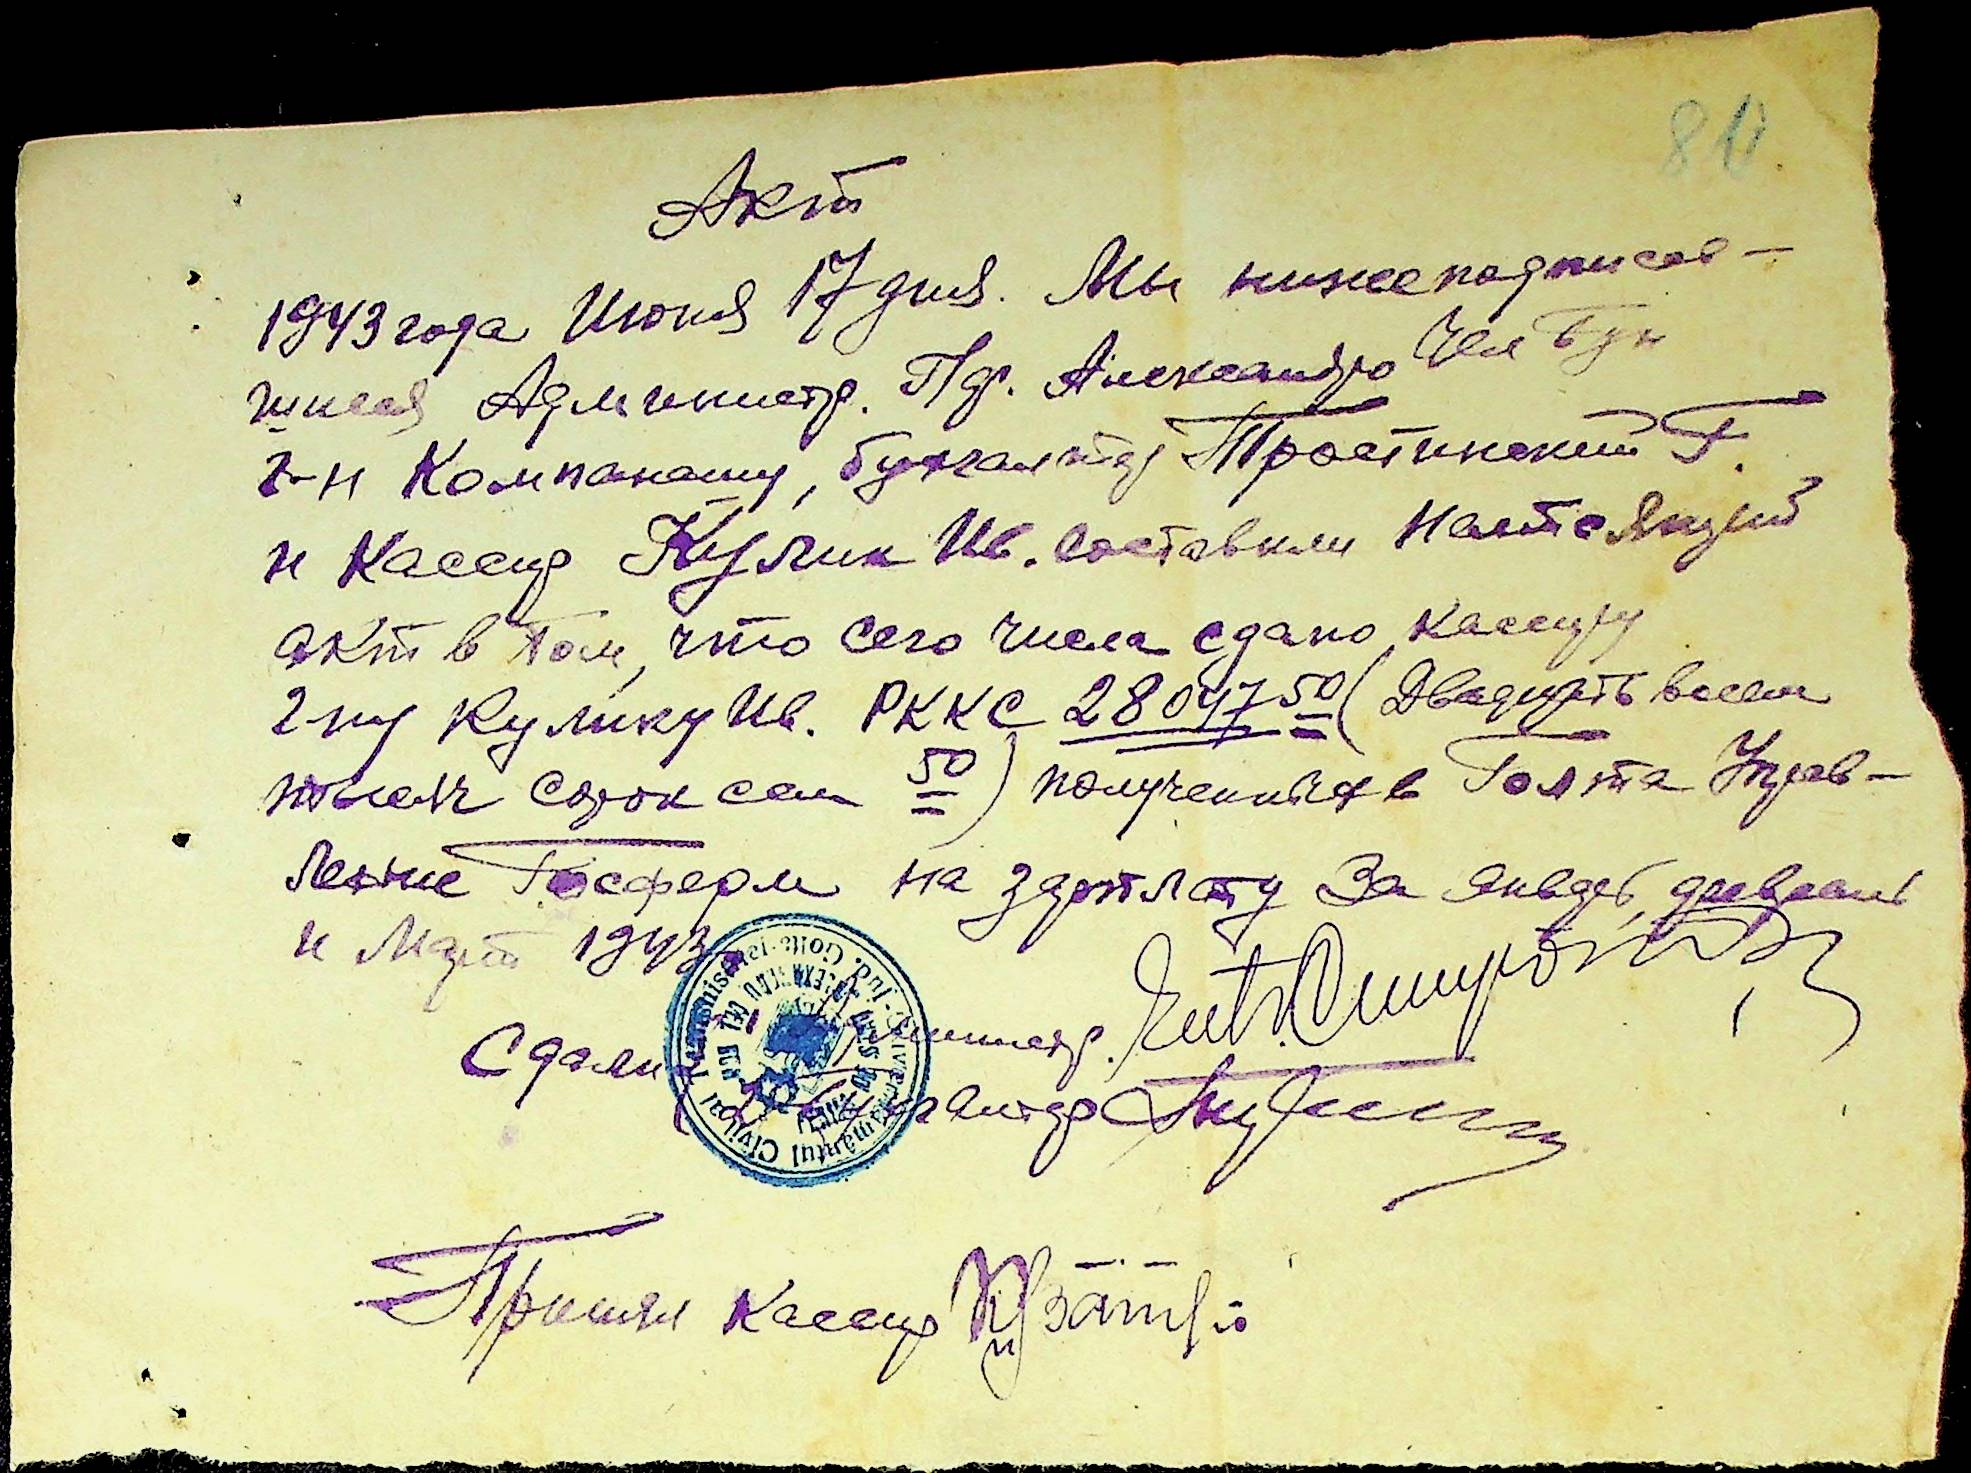 80
Акт
1943 года Июня 17 дня. Мы нижеподписав-
шиеся Администр. Пдр. Александро Чел Бун
г-н Компанашу, бухгалтер Тростинский Г.
и Кассир Кулик Ив. составили настоящий
акт в том, что сего числа сдано кассиру
г-ну Кулику Ив. РККС 28047 50 (Двадцать восем
тысяч сорок сем 50) полученных в Голта Управ-
ление Госферм на зарплату за январь, февраль
и Март 1943
Сдали Администр.
Бухгалтер
Принял Кассир
Guvernamantul Civil al Transnistriei Jud. Golta